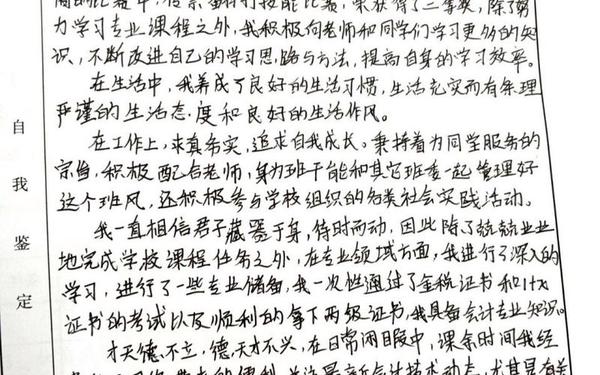 自我鉴定
力学习专业课程之外,我积极向老师和同学们学习更多的知
识,不断改进自己的学习思路与方法,提高自身的学习效率。
在生活中,我养成了良好的生活习惯,生活充实而有条理
严谨的生活态度和良好的生活作风。
在工作上,求真务实,追求自我成长。秉持着为同学服务的
宗旨,积极配合老师,身为班干能和其它班委一起管理好
这个班风,还积极参与学校组织的各类社会实践活动。
我一直相信君子藏器于身,待时而动,因此除了兢兢业业
地完成学校课程任务之外,在专业领域方面,我进行了深入的
学习,进行了一些专业储备,我一次性通过了金税证书和1+x
证书的考试以及顺利的拿下两级证书,我具备会计专业知识。
才无德不立,德无才不兴,在日常闲暇中,课余时间我经